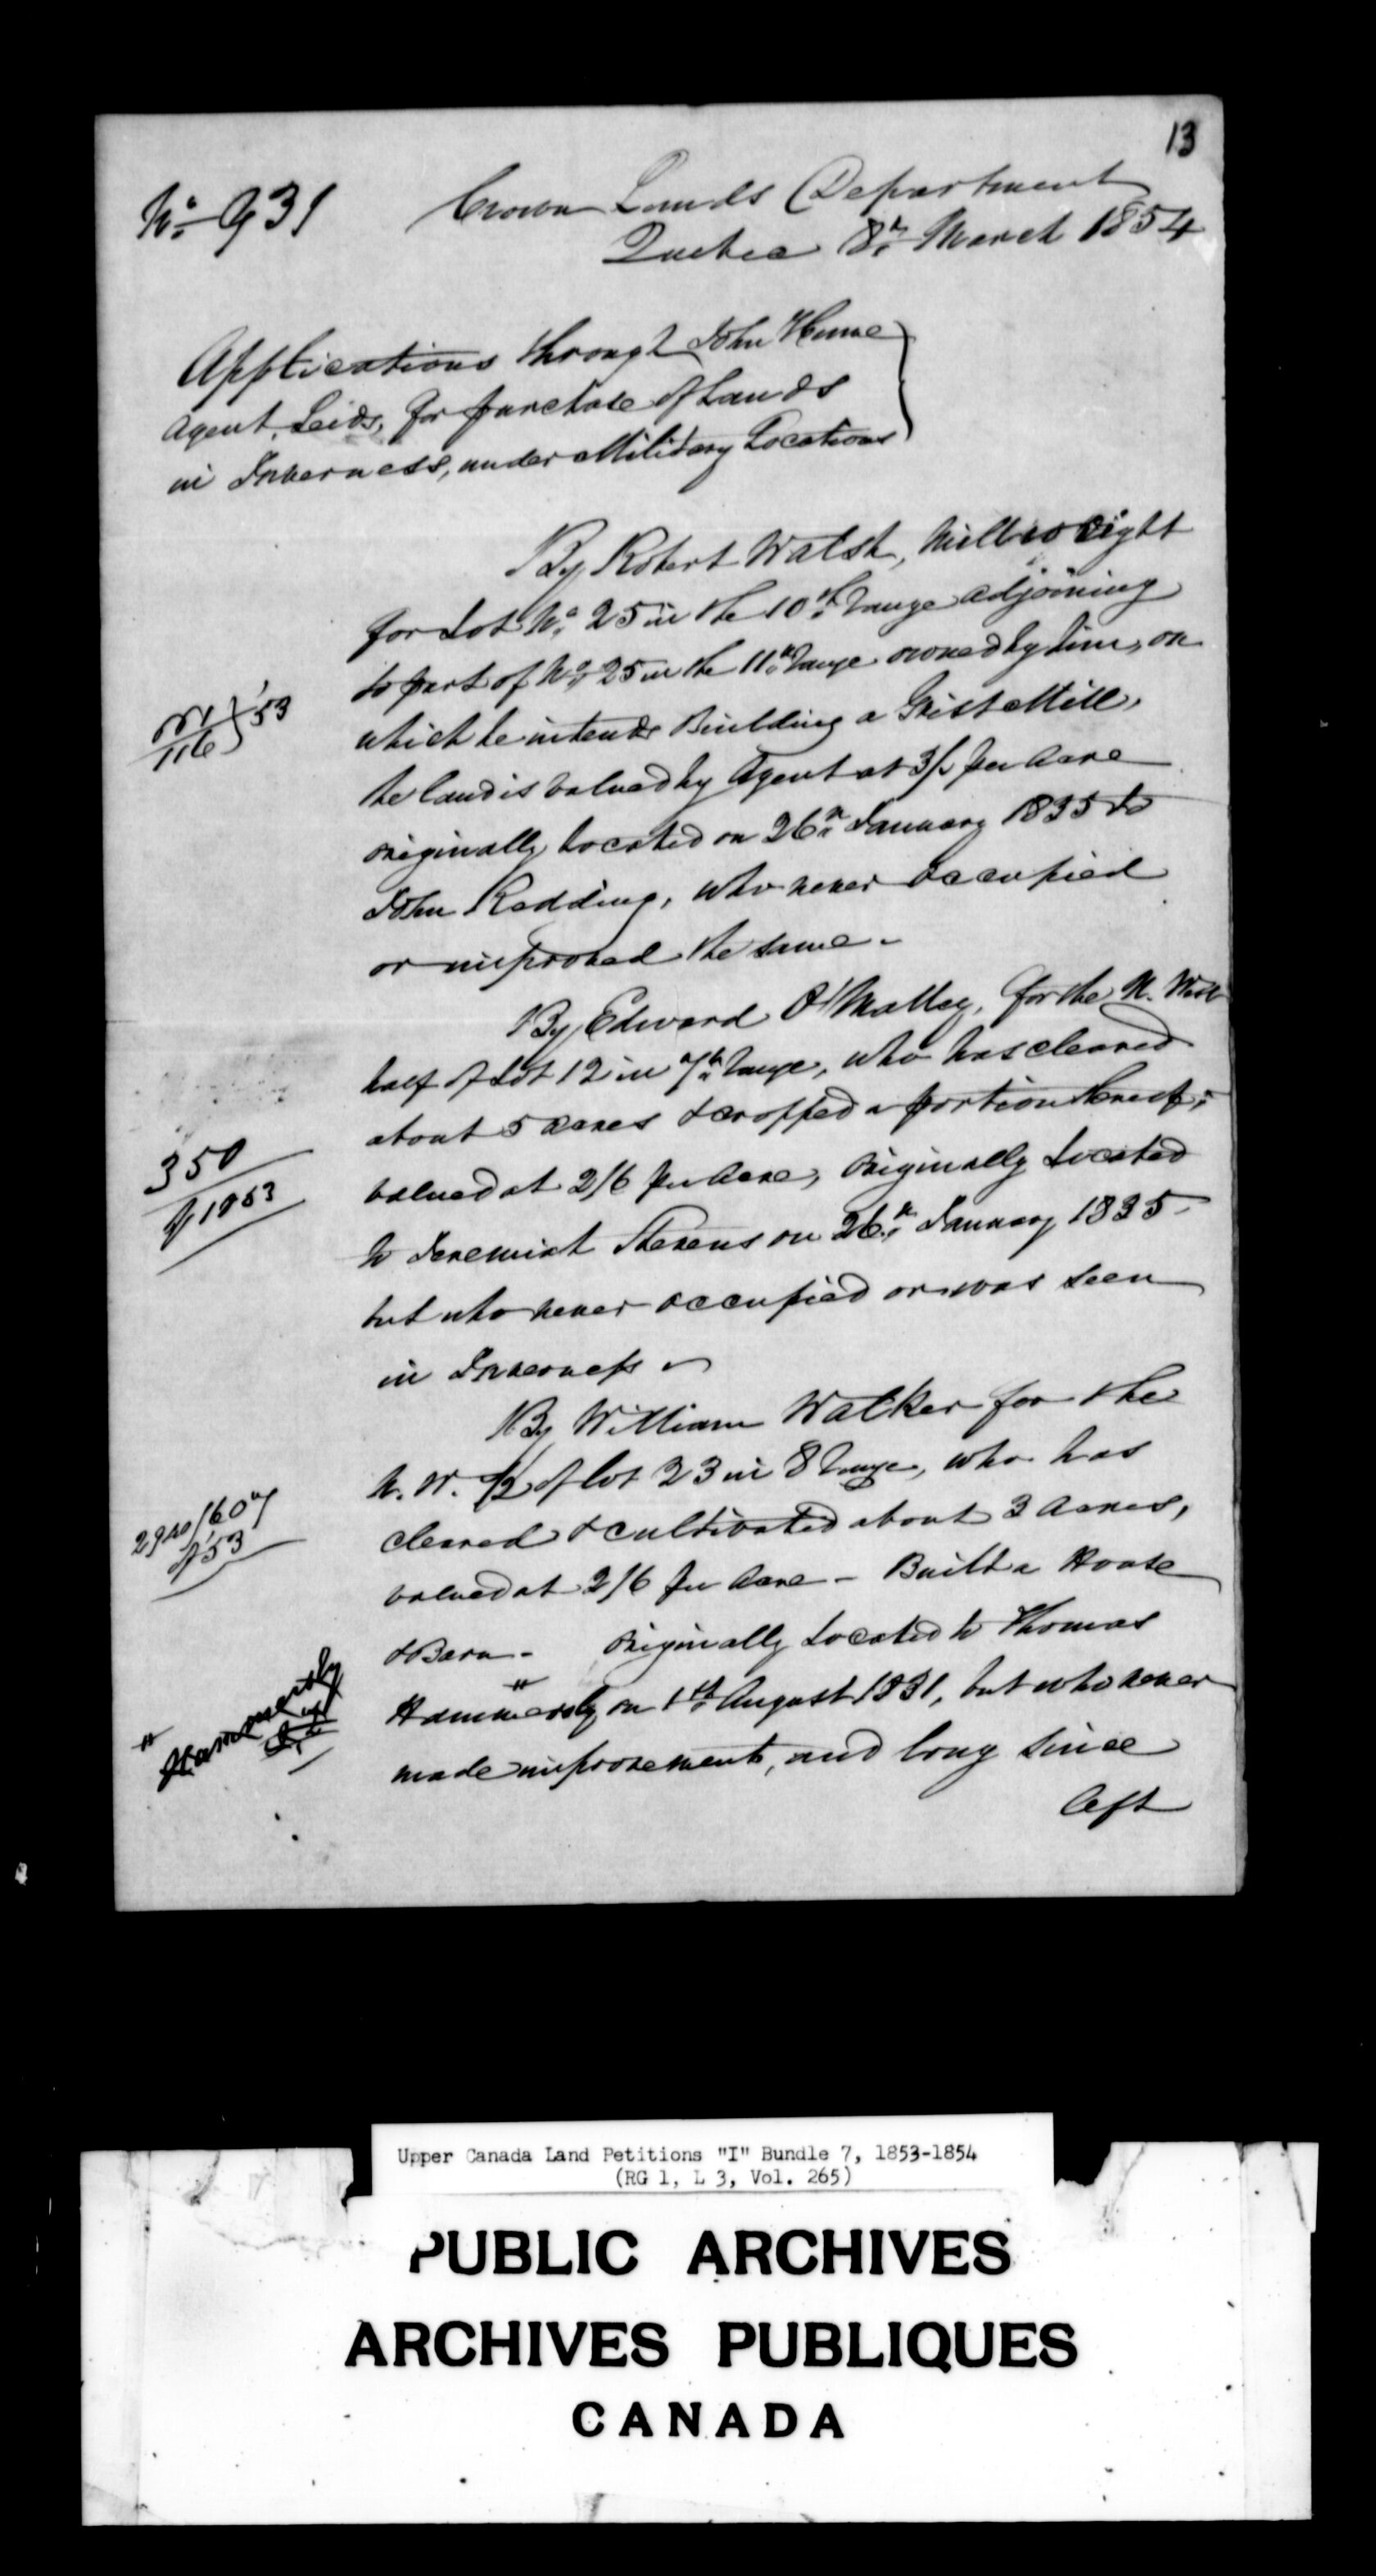 13
No. 931
Crown Lands Department
Quebec 8th March 1854
Applications through John Hume
Agent, Leeds, for purchase of Lands
in Inverness, under Military Locations
By Robert Walsh, Millwright
for Lot No. 25 in the 10th range adjoining
to part of No. 25 in the 11th range owned by him, on
which he intends Building a Grist Mill,
the land is valued by Agent at 3/- per Acre
'53
116
originally located on 26th January 1835 to
John Redding, who never occupied
or improved the same.
By Edward O'Malley, for the N. West
half of Lot 12 in 7th range, who has cleared
about 5 acres & cropped a portion thereof,
350
1853
valued at 2/6 per Acre, originally located
to Jeremiah Stevens on 26th January 1835
but who never occupied or was seen
in Inverness
By William Walker for the
N. W. 1/2 of lot 23 in 8 range, who has
cleared & cultivated about 3 Acres,
'53
valued at 2/6 per Acre - Built a House
& Barn - originally located to Thomas
Hammersly on 1st August 1831, but who never
" Hammersly
made improvements, and long since
left
Upper Canada Land Petitions "I" Bundle 7, 1853-1854
(RG 1, L 3, Vol. 265)
PUBLIC ARCHIVES
ARCHIVES PUBLIQUES
CANADA